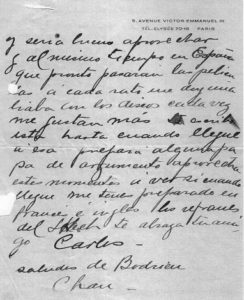 5, AVENUE VICTOR EMMANUEL III
TÉL. ELYSÉE 70-18 PARIS
y sería bueno aprovechar
y al mismo tiempo en España
que pronto pasaran las pelicu
las á cada rato me
con los discos cada vez
me gustan más te
hasta cuando llegue
á esa prepara alguna pa
pa de argumento aprovecha
estos momentos á ver si cuando
llegue me tenes preparado en
frances e ingles
del te abraza tu ami
go Carlos
saludos de
Chau